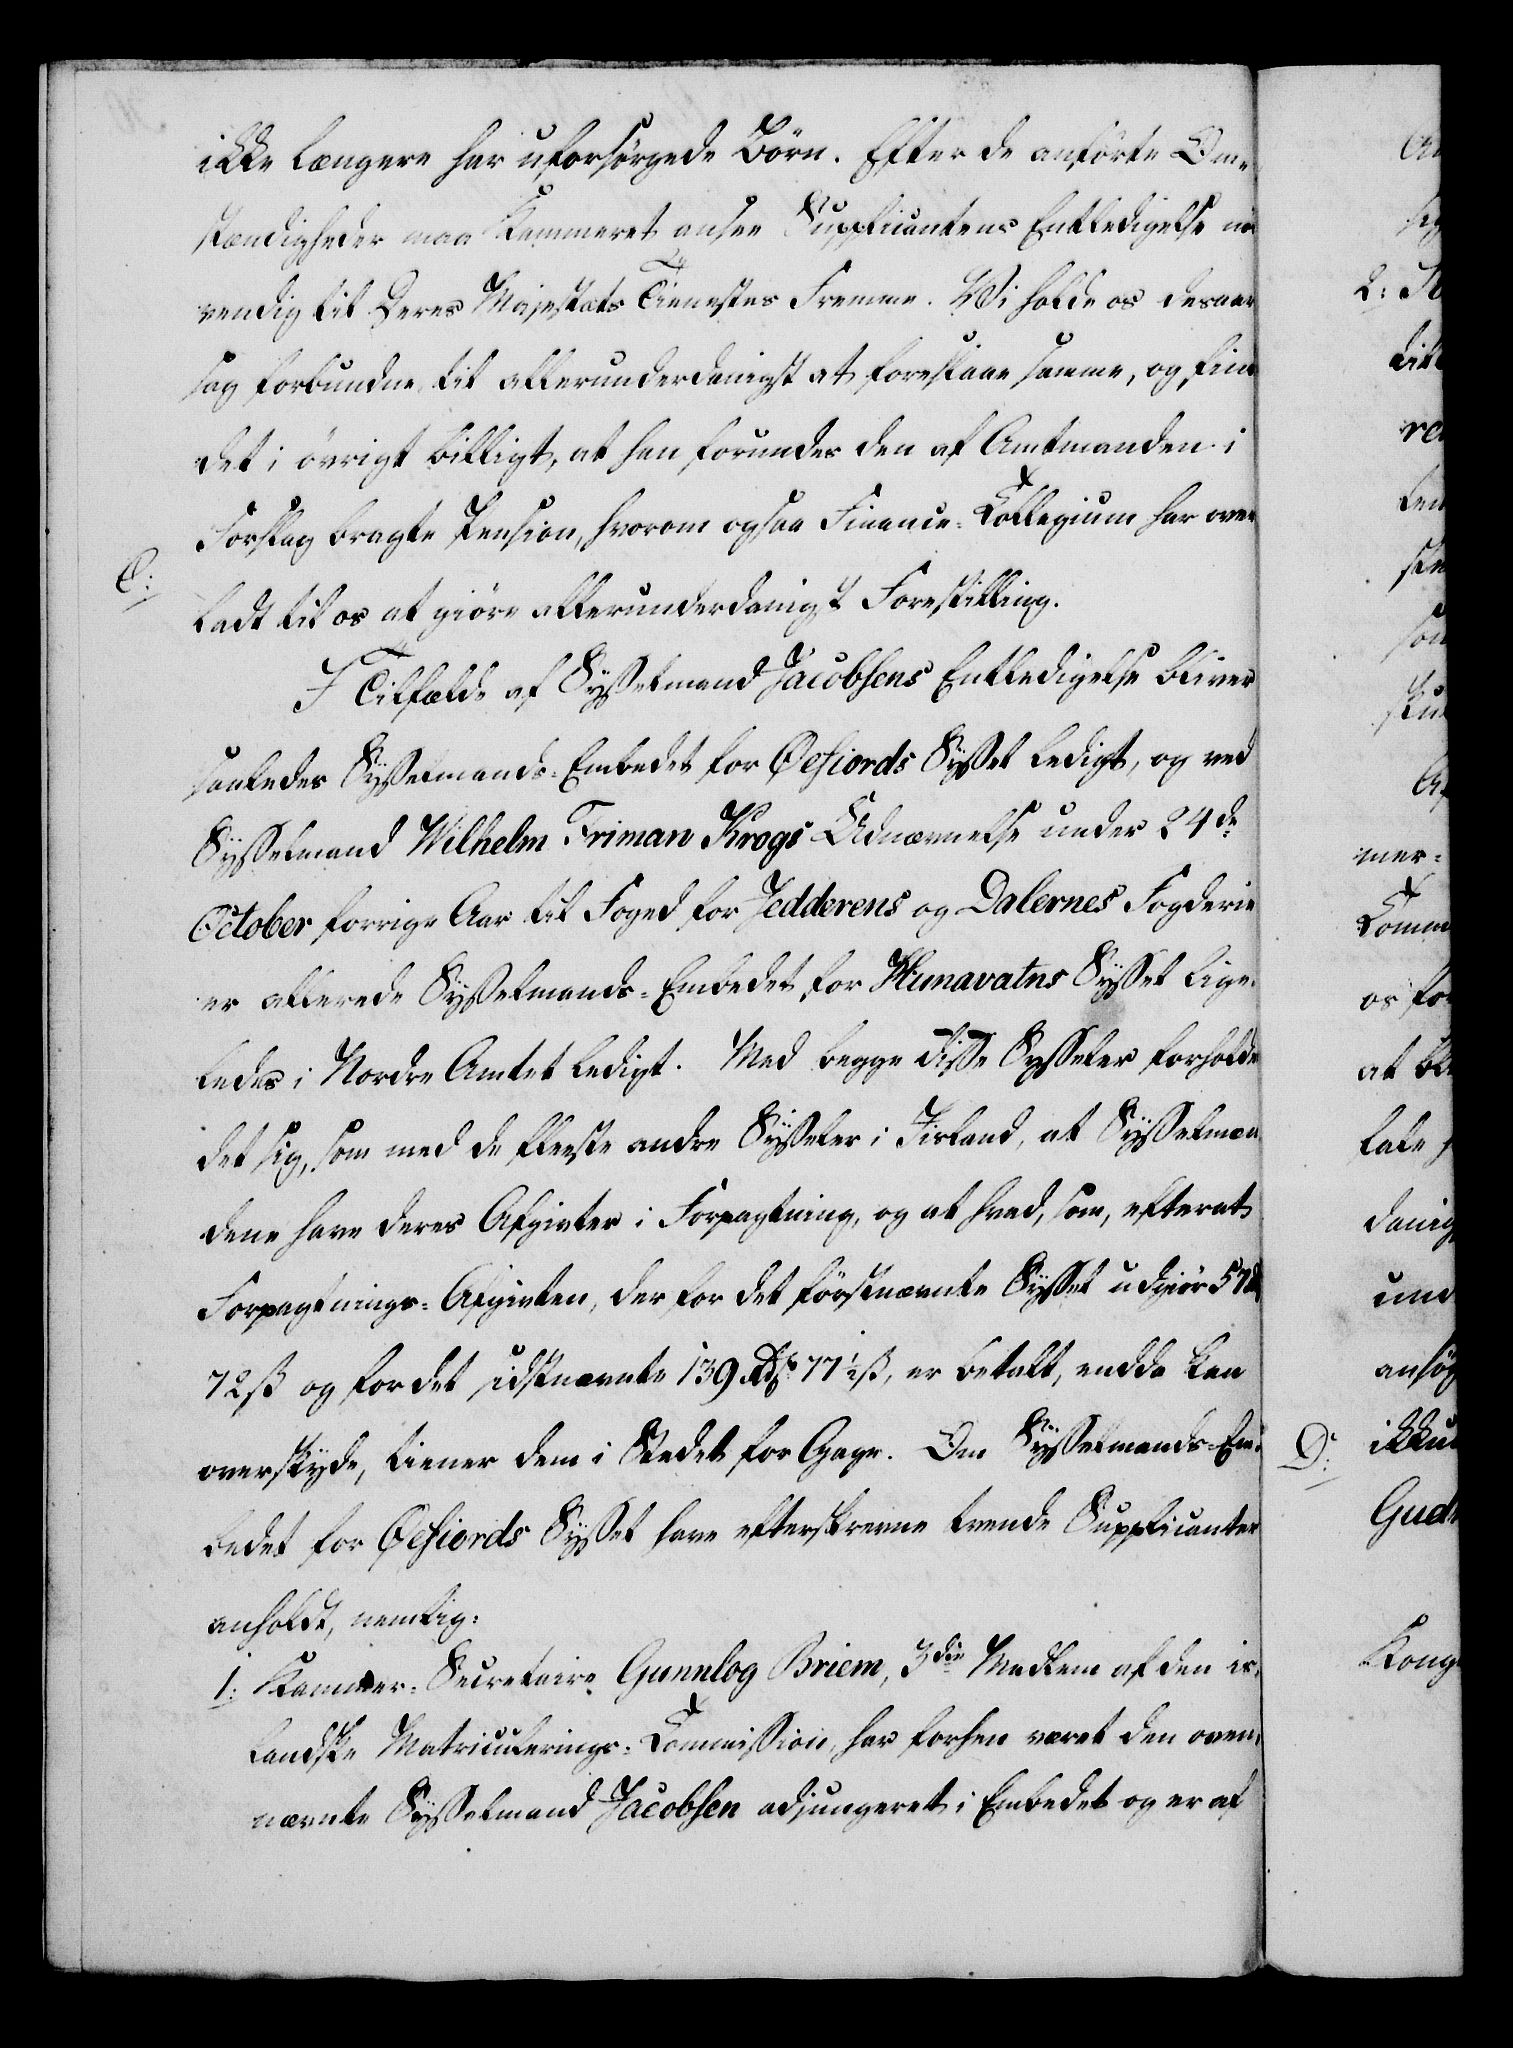 ikke længere har uforsørgede Börn. Efter de anförte Om-
stændigheder maa Kammeret ansee Supplicantens Entledigelse nö
vendig til Deres Majestæts Tienestes Fremme. Vi holde os desaar
sag forbundne til allerunderdanigst at forestaae samme, og fin
det i övrigt billigt, at han forundes den af Amtmanden i
Forslag bragte Pension, hvorom ogsaa Finance-Collegium har over
C:
ladt til os at giöre allerunderdanigst Forestilling.
I Tilfælde af Sysselmand Jacobsens Entledigelse bliver
saaledes Sysselmands-Embedet for Öefiords Syssel ledigt, og ved
Sysselmand Wilhelm Friman Krogs Udnævnelse under 24de
October forrige Aar til Foged for Jedderens og Dalernes Fogderie
er allerede Sysselmands-Embedet for Hunavatns Syssel lige-
ledes i Nordre Amtet ledigt. Med begge disse Sysseler forholde
det sig, som med de fleeste andre Sysseler i Iisland, at Sysselmæn
dene have deres Afgivter i Forpagtning, og at hvad, som, efterat
Forpagtnings-Afgivten, der for det förstnævnte Syssel udgiör 57 Rd
72 ß og for det sidstnævnte 139 Rdlr 77 1/2 ß, er betalt, endda kan
overskyde, tiener dem i Stedet for Gage. Om Sysselmands-Em-
bedet for Öefiords Syssel have efterskrevne trende Supplicanter
anholdt, nemlig:
1: Kammer-Secretaire Gunnlog Briem, 3die Medlem af den is-
landske Matriculerings-Commission, har forhen været den oven-
nævnte Sysselmand Jacobsen adjungeret i Embedet og er af
2:
mer-
os for
at
D:
Gud
Kong